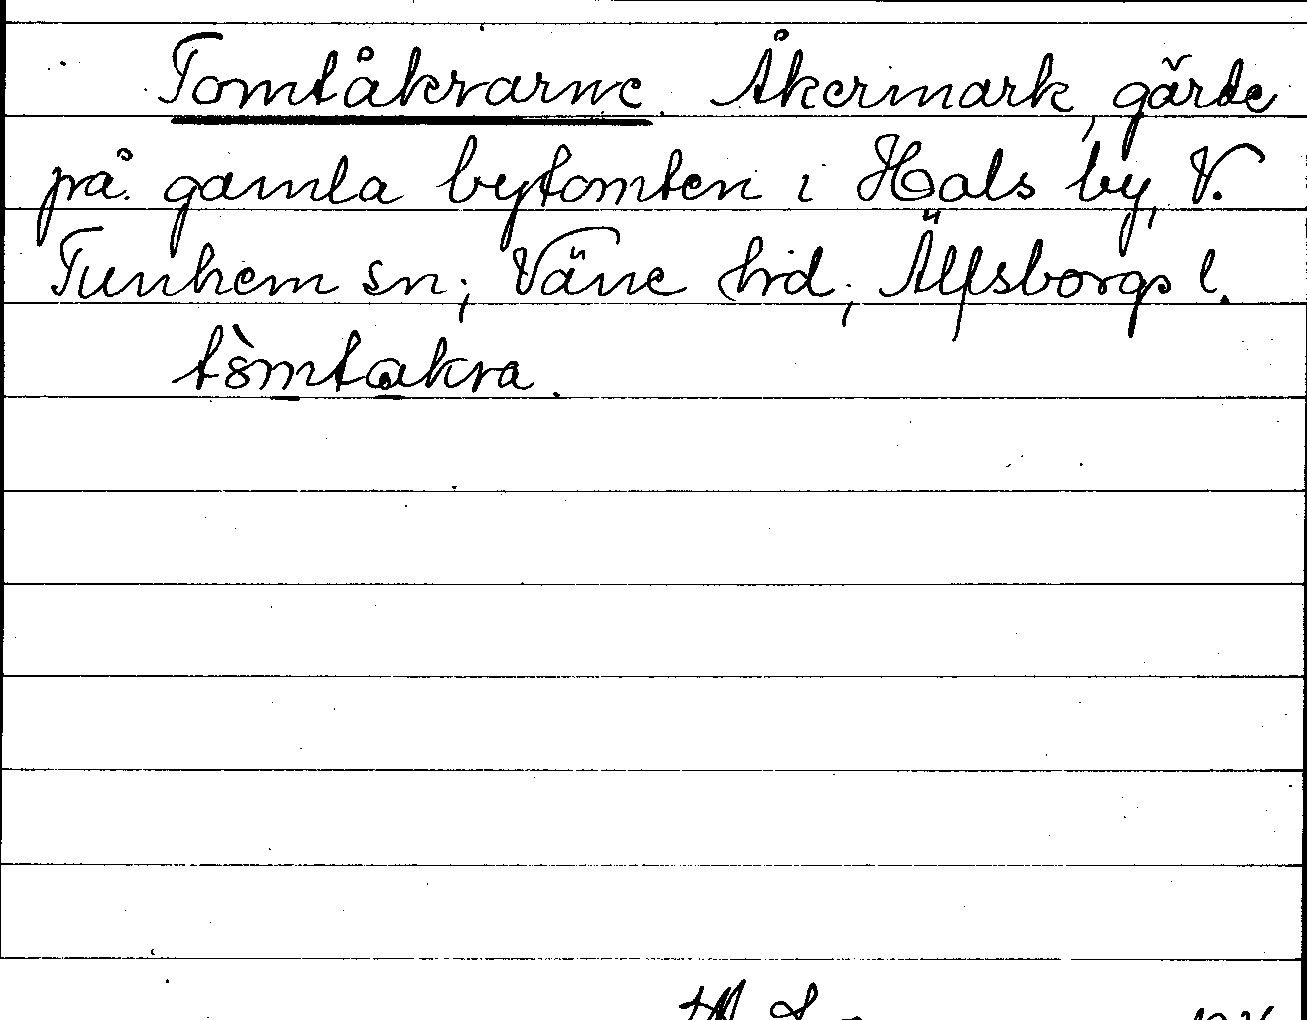 Tomtåkrarne. Åkermark, gärde
på gamla bytomten i Hals by, V.
Tunhem sn; Väne hd; Älfsborgs l.
tòmtakra.